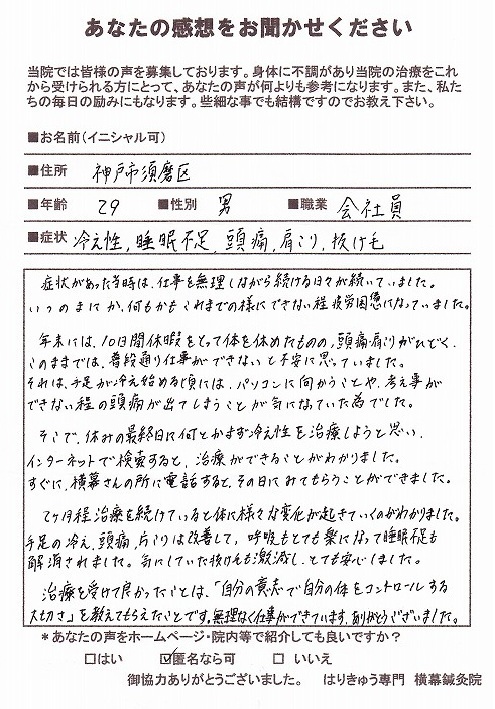 あなたの感想をお聞かせください
当院では皆様の声を募集しております。身体に不調があり当院の治療をこれ
から受けられる方にとって、あなたの声が何よりも参考になります。また、私た
ちの毎日の励みにもなります。些細な事でも結構ですのでお教え下さい。
■お名前(イニシャル可)
■住所 神戸市須磨区
■年齢 29 ■性別 男 ■職業 会社員
■症状 冷え性, 睡眠不足, 頭痛, 肩こり, 抜け毛
症状があった当時は、仕事を無理しながら続ける日々が続いていました。
いつのまにか、何もかもこれまでの様にできない程疲労困憊になっていました。
年末には、10日間休暇をとって体を休めたものの、頭痛肩こりがひどく、
このままでは、普段通り仕事ができないと不安に思っていました。
それは、手足が冷え始める頃には、パソコンに向かうことや、考え事が
できない程の頭痛が出てしまうことが気になっていた為でした。
そこで、休みの最終日に何とかまず冷え性を治療しようと思い、
インターネットで検索すると、治療ができることがわかりました。
すぐに、横幕さんの所に電話すると、その日にみてもらうことができました。
2ヶ月程治療を続けていると体に様々な変化が起きていくのがわかりました。
手足の冷え、頭痛、肩こりは改善して、呼吸もとても楽になって睡眠不足も
解消されました。気にしていた抜け毛も激減し、とても安心しました。
治療を受けて良かったことは、「自分の意志で自分の体をコントロールする
大切さ」を教えてもらえたことです。無理なく仕事ができています。ありがとうございました。
*あなたの声をホームページ・院内等で紹介しても良いですか?
□はい ☑匿名なら可 □ いいえ
御協力ありがとうございました。 はりきゅう専門 横幕鍼灸院